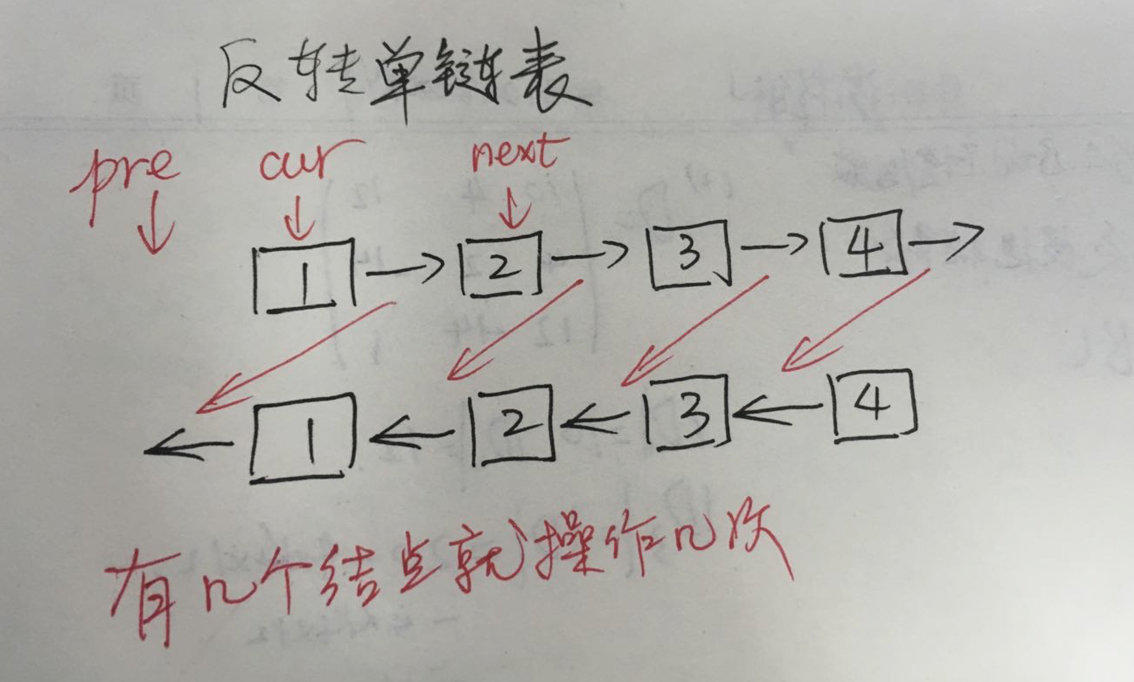 反转单链表
pre cur next
1 2 3 4
1 2 3 4
有几个结点就操作几次